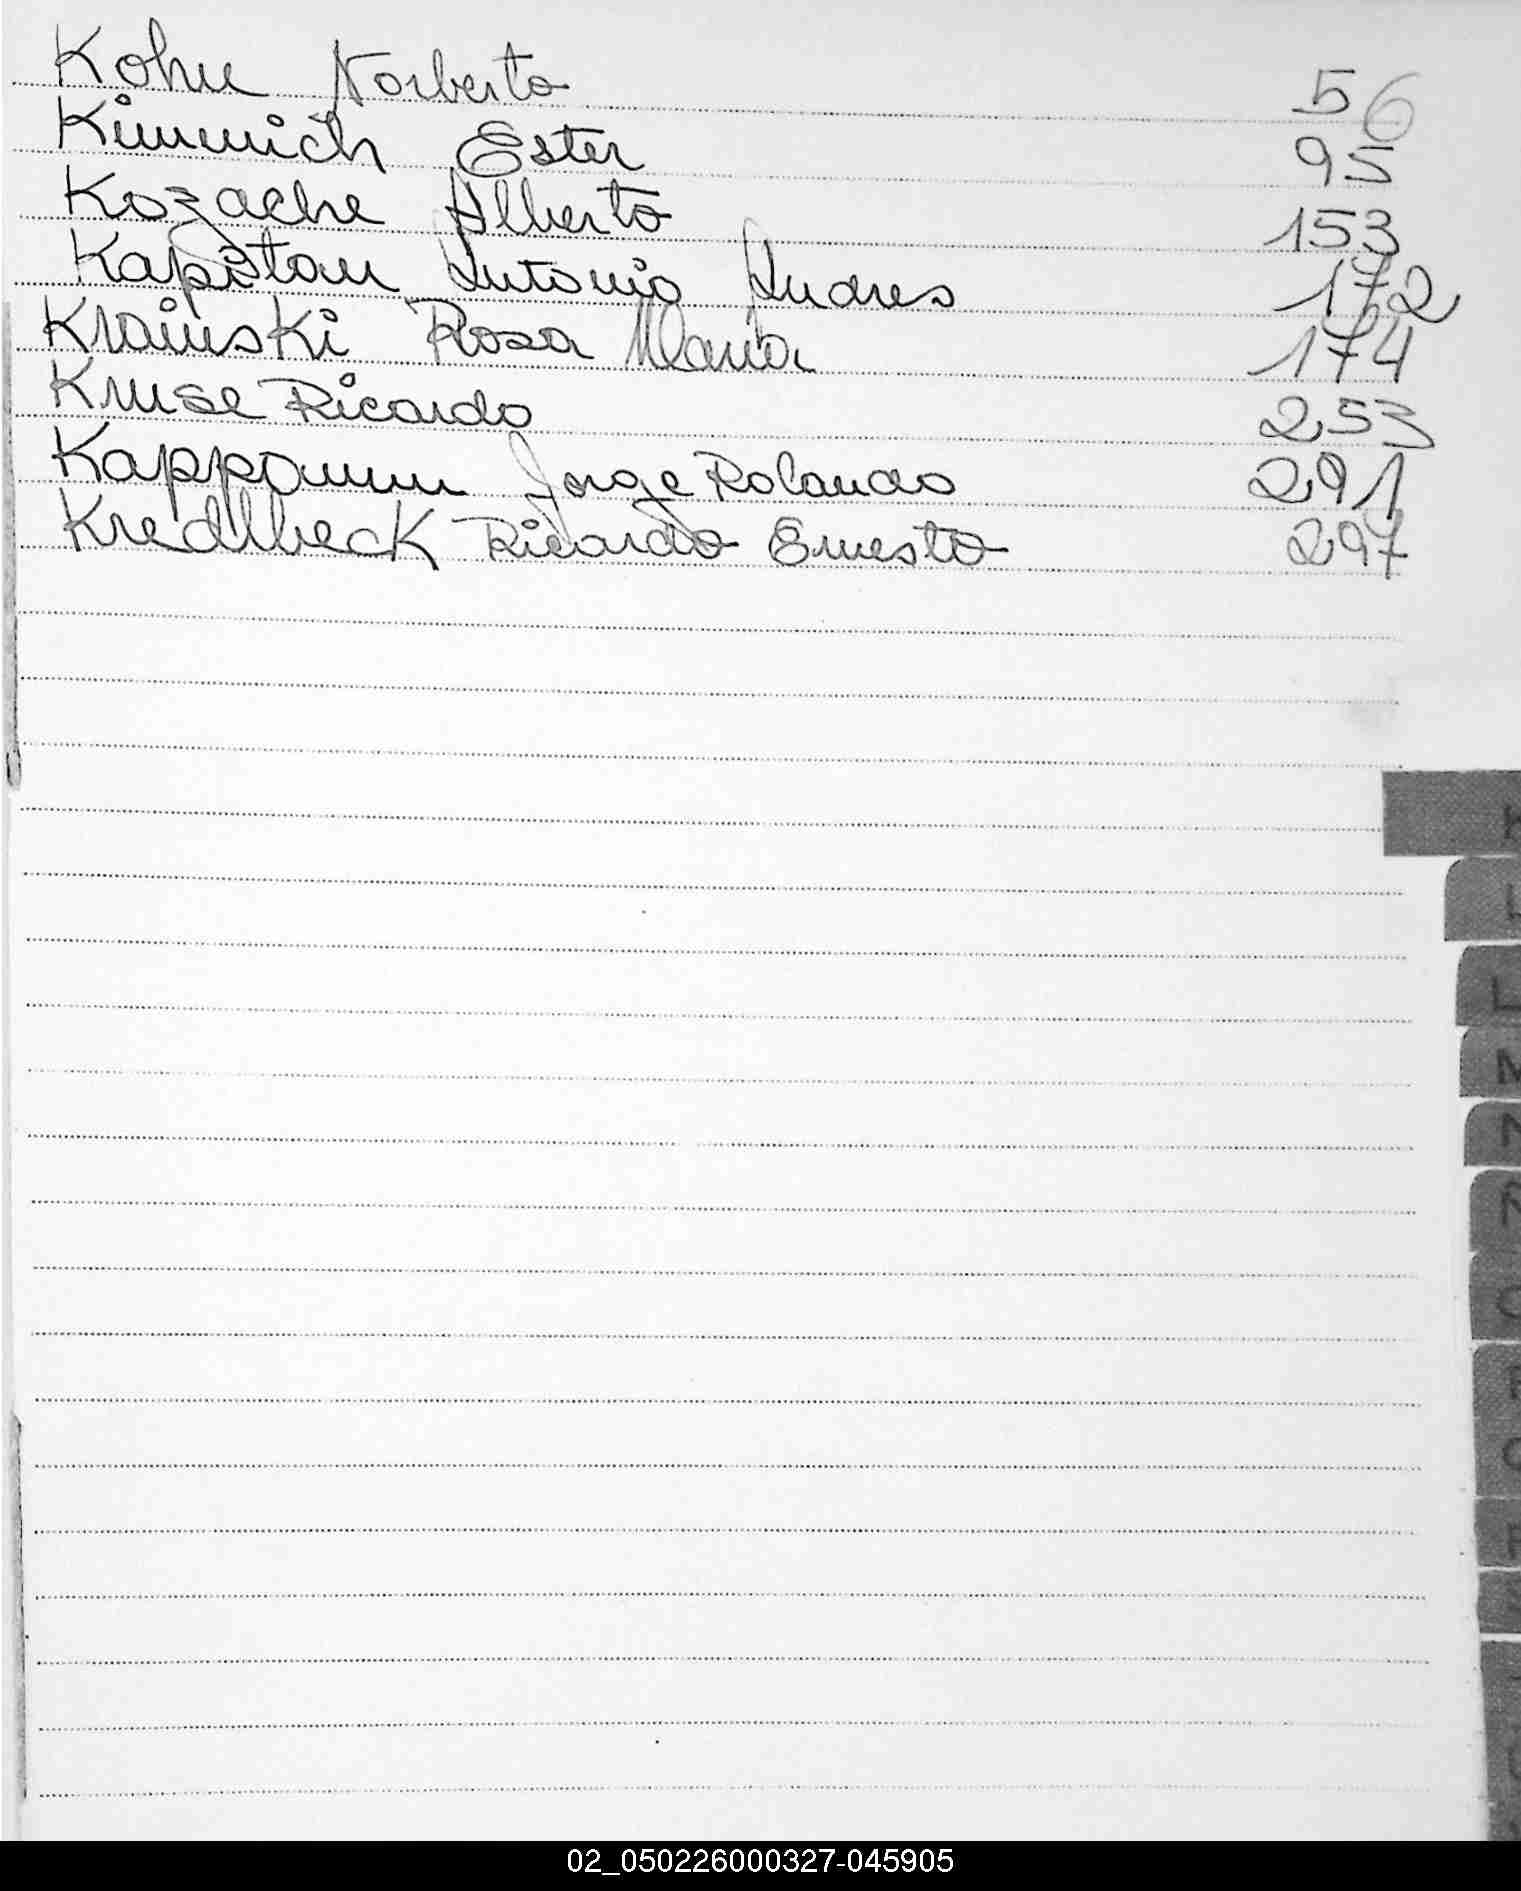 Kohn Norberto 56
Kimmich Ester 95
Kozache Alberto 153
Kapitan Antonio Andres 172
Krainski Rosa Maria 174
Kruse Ricardo 253
Kappamm Jorge Rolando 291
Kredlbeck Ricardo Ernesto 297
K
L
L
M
N
Ñ
O
P
Q
R
S
T
U
02_050226000327-045905